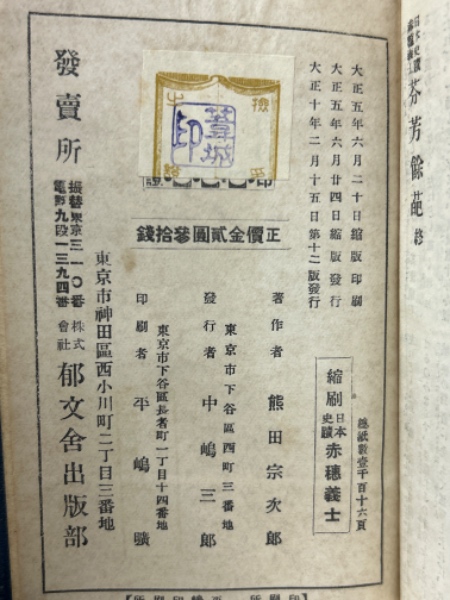 日本史蹟
芬芳餘葩 終
大正五年六月二十日縮版印刷
大正五年六月廿四日縮版發行
大正十年二月十五日第十二版發行
總紙數壹千百十六頁
縮刷 日本史蹟 赤穗義士
檢
葦城
印
正價金貳圓參拾錢
著作者 熊田宗次郎
東京市下谷區西町三番地
發行者 中嶋三郎
東京市下谷區長者町一丁目十四番地
印刷者 平嶋
發賣所
東京市神田區西小川町二丁目三番地
株式會社 郁文舍出版部
振替東京三一〇番
電話九段一三九四番